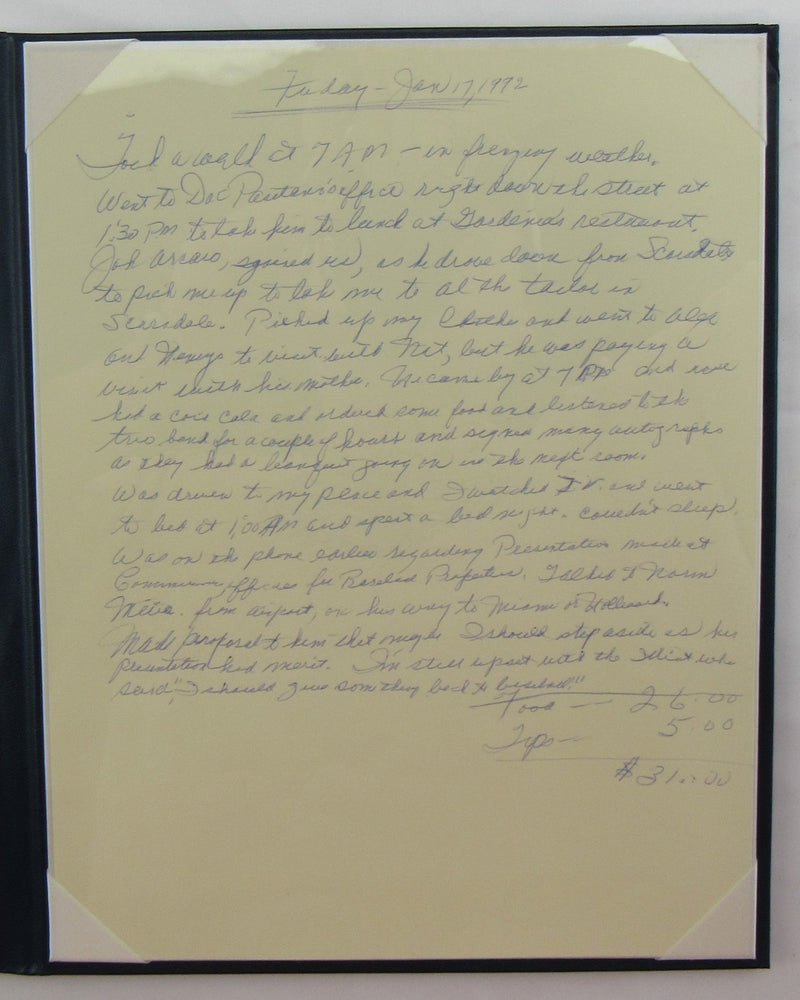 Friday - Jan 17, 1992
Took a walk at 7 AM - in freezing weather.
Went to Doc office right down the street at
1:30 PM to take him to lunch at restaurant.
Joh Arcaro, joined us, as he drove down from Scarsdale
to pick me up to take me to Al the tailor in
Scarsdale. Picked up my Clothes and went to Alex
and Henrys to visit with Nat, but he was paying a
visit with his mother. He came by at 7 PM and
had a coca cola and ordered some food and listened to the
trio band for a couple of hours and signed many autographs
as they had a banquet going on in the next room.
Was driven to my place and I watched T.V. and went
to bed at 1:00 AM and spent a bad night. Couldn't sleep.
Was on the phone earlier regarding Presentation made at
offices for Baseball Properties. Talked to Norm
from airport, on his way to Miami or Hollywood.
Made proposal to him that maybe I should step aside as his
presentation had merit. I'm still upset with the Idiot who
said "I should give something back to baseball."
Food — 26.00
Tips — 5.00
$31.00